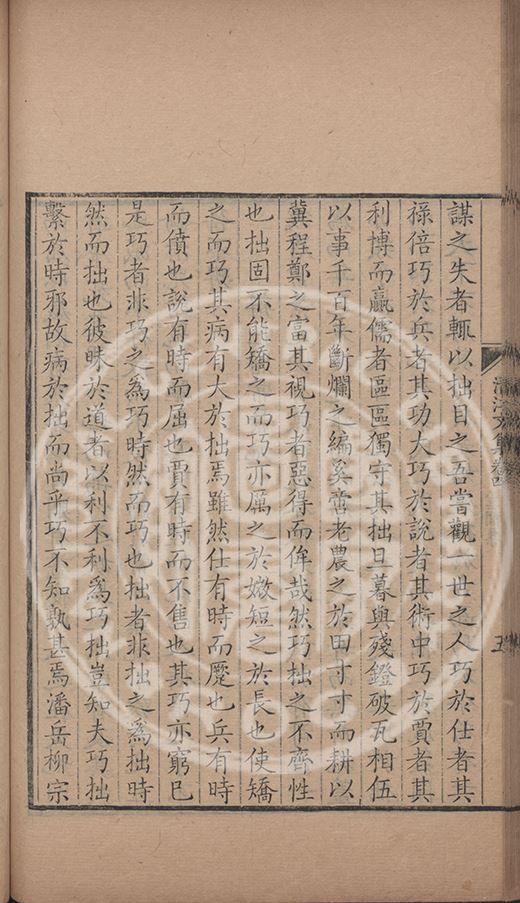 謀之失者輒以拙目之吾嘗觀一世之人巧於仕者其
祿倍巧於兵者其功大巧於說者其術中巧於賈者其
利博而贏儒者區區獨守其拙旦暮與殘鐙破瓦相伍
以事千百年斷爛之編奚啻老農之於田寸寸而耕以
冀程鄭之富其視巧者惡得而侔哉然巧拙之不齊性
也拙固不能矯之而巧亦厲之於媺短之於長也使矯
之而巧其病有大於拙焉雖然仕有時而躓也兵有時
而僨也說有時而屈也賈有時而不售也其巧亦窮巳
是巧者非巧之為巧時然而巧也拙者非拙之為拙時
然而拙也彼昧於道者以利不利為巧拙豈知夫巧拙
繫於時邪故病於拙而尚乎巧不知孰甚焉潘岳柳宗
文集卷四
五